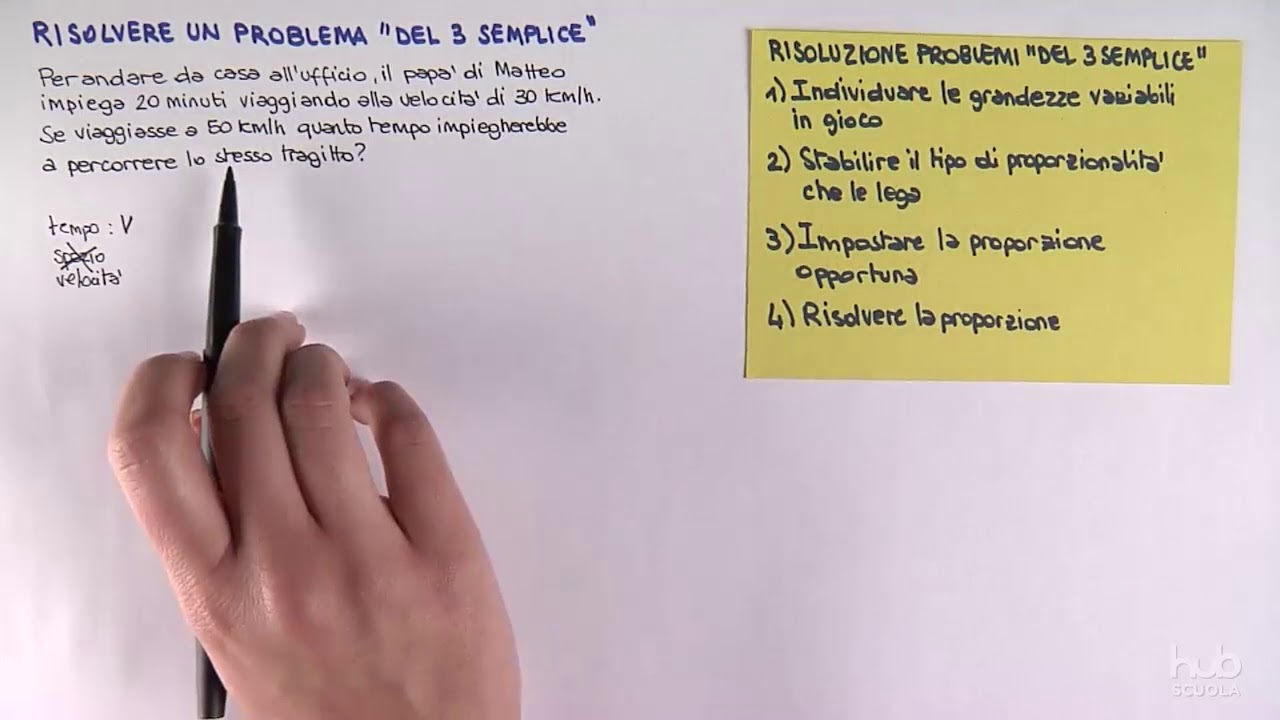 RISOLVERE UN PROBLEMA "DEL 3 SEMPLICE"
Per andare da casa all'ufficio, il papa' di Matteo
impiega 20 minuti viaggiando alla velocita' di 30 km/h.
Se viaggiasse a 50 km/h quanto tempo impiegherebbe
a percorrere lo stesso tragitto?
tempo : V
spazio
velocita'
RISOLUZIONE PROBLEMI "DEL 3 SEMPLICE"
1) Individuare le grandezze variabili
in gioco
2) Stabilire il tipo di proporzionalita'
che le lega
3) Impostare la proporzione
opportuna
4) Risolvere la proporzione
hub
SCUOLA